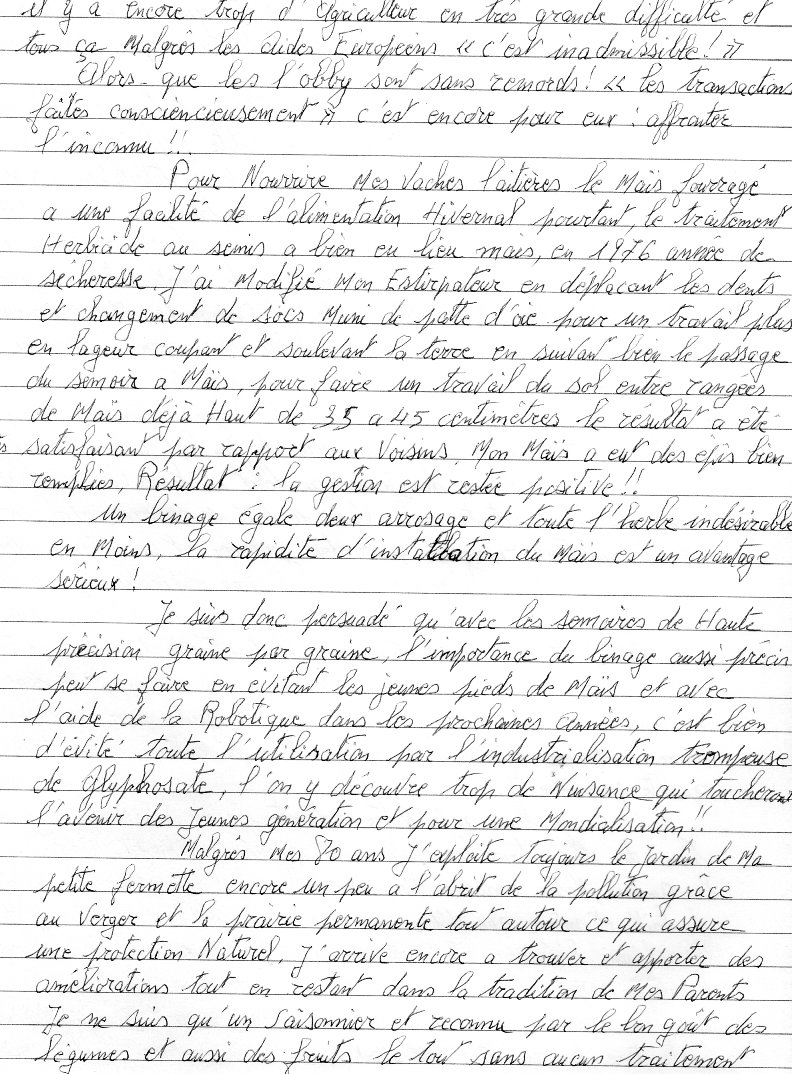 il y a encore trop d'Agriculteur en très grande difficulté et
tous ça Malgrès les aides Européens « c'est inadmissible! »
Alors que les l'obby sont sans remords! « les transactions
faîtes consciencieusement » c'est encore pour eux : affronter
l'inconnu !!
Pour Nourrire Mes Vaches laitières le Maïs fourragé
a une facilité de l'alimentation Hivernal pourtant, le traitement
Herbicide au semis a bien eu lieu mais, en 1976 année de
secheresse. J'ai Modifié Mon Estirpateur en déplaçant les dents
et changement de socs Muni de patte d'oie pour un travail plus
en lageur coupant et soulevant la terre en suivant bien le passage
du semoir a Maïs, pour faire un travail du sol entre rangées
de Maïs déjà Haut de 35 a 45 centimètres le résultat a été
satisfaisant par rapport aux Voisins, Mon Maïs a eut des épis bien
remplies, Résultat : la gestion est restée positive !!
Un binage égale deux arrosage et toute l'herbe indésirable
en Moins, la rapidité d'installation du Maïs est un avantage
serieux !
Je suis donc persuadé qu'avec les semoires de Haute
précision graine par graine, l'importance du binage aussi précis
peut se faire en évitant les jeunes pieds de Maïs et avec
l'aide de la Robotique dans les prochaines Années, c'est bien
d'évité toute l'utilisation par l'industrialisation trompeuse
de Glyphosate, l'on y découvre trop de Nuisance qui toucheront
l'avenir des Jeunes génération et pour une Mondialisation !!
Malgrés Mes 80 ans J'exploite toujours le Jardin de Ma
petite fermette encore un peu a l'abrit de la pollution grâce
au Verger et la prairie permanente tout autour ce qui assure
une protection Naturel, J'arrive encore a trouver et apporter des
améliorations tout en restant dans la tradition de Mes Parents
Je ne suis qu'un Saisonnier et reconnu par le bon goût des
légumes et aussi des fruits le tout sans aucun traitement